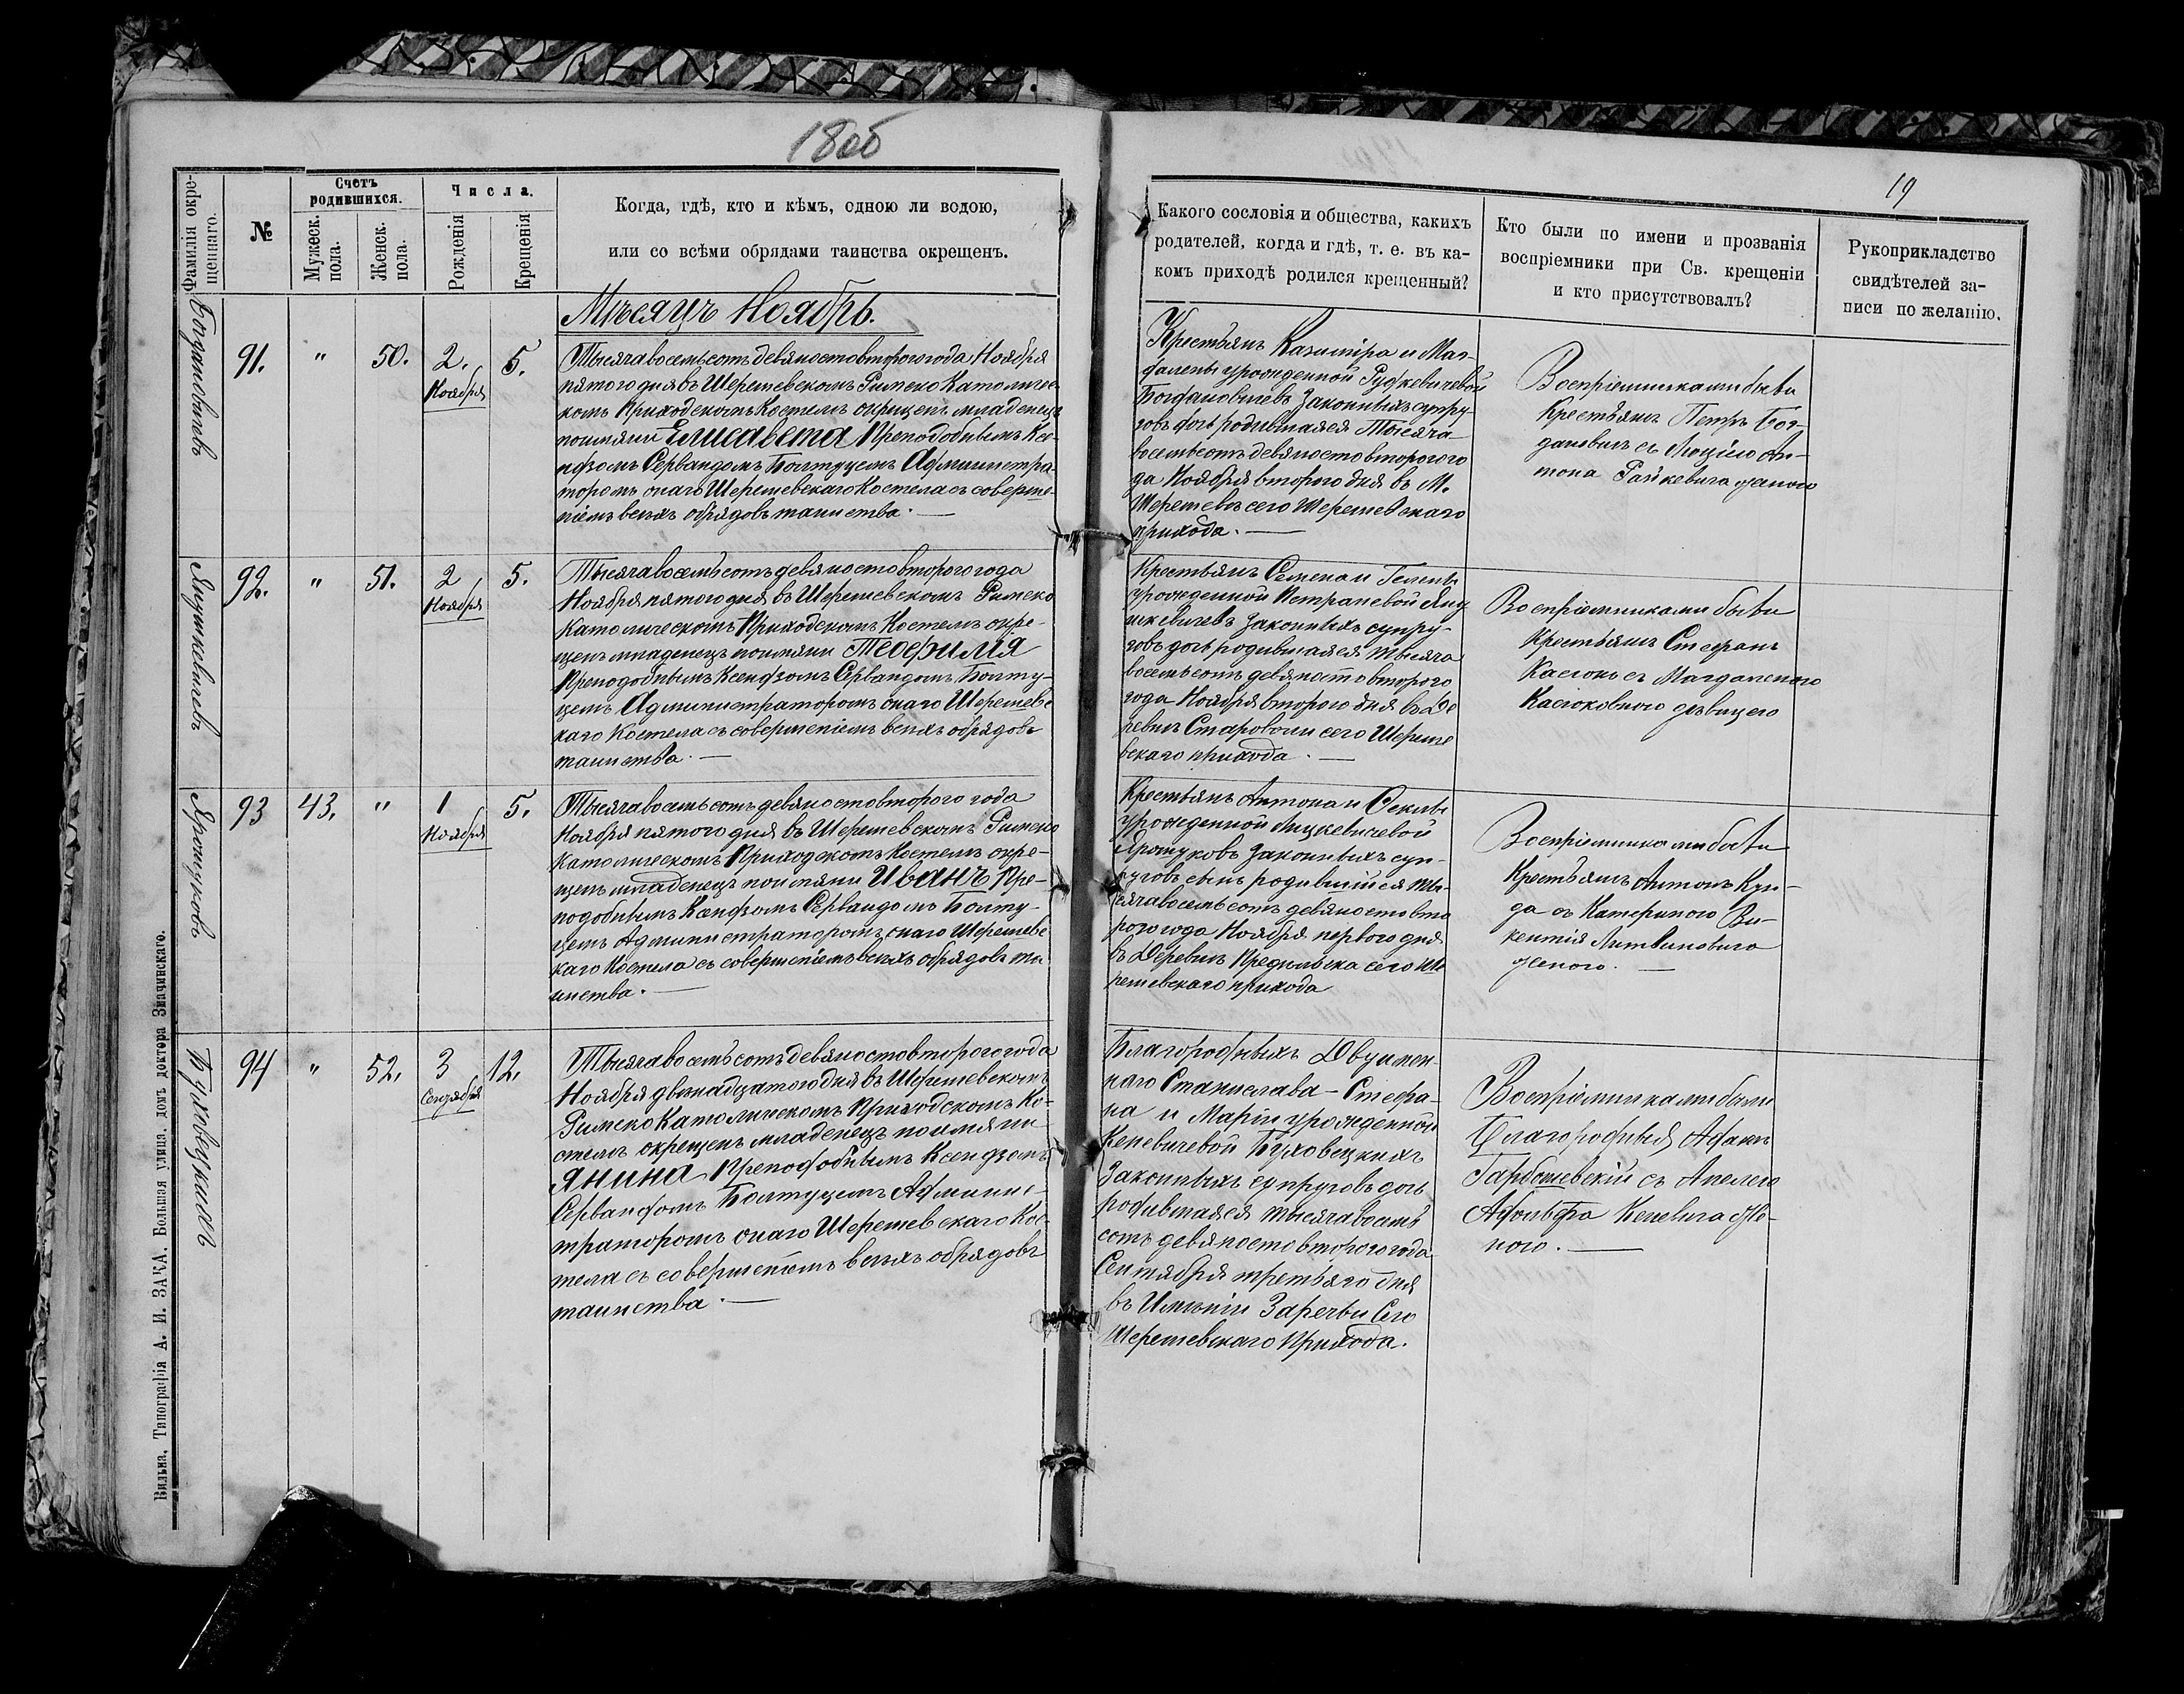 18об
19
Фамилія окре-
щеннаго.
№
Счетъ
родившихся.
Мужеск.
пола.
Женск.
пола.
Числа.
Рожденія
Крещенія
Когда, гдѣ, кто и кѣмъ, одною ли водою,
или со всѣми обрядами таинства окрещенъ.
Какого сословія и общества, какихъ
родителей, когда и гдѣ, т. е. въ ка-
комъ приходѣ родился крещенный?
Кто были по имени и прозванія
воспріемники при Св. крещеніи
и кто присутствовалъ?
Рукоприкладство
свидѣтелей за-
писи по желанію.
Мѣсяцъ Ноябрь.
Богдановичевъ
91.
"
50.
2.
Ноября
5.
Тысяча восемьсотъ девяносто второго года Ноября
пятого дня въ Шерешевскомъ Римско Католичес-
комъ Приходскомъ Костелѣ окрещенъ младенецъ
по имяни Елисавета Преподобнымъ Ксе-
ндзомъ Сервандомъ Болтуцемъ Администра-
торомъ онаго Шерешевскаго Костела съ соверше-
ніемъ всѣхъ обрядовъ таинства. —
Крестьянъ Казиміра и Маг-
далены урожденной Рудкевичевой
Богдановичевъ Законныхъ супру-
говъ дочь родившаяся Тысяча
восемьсотъ девяносто второго го
да Ноября второго дня въ М.
Шерешевѣ сего Шерешевскаго
прихода. —
Воспріемниками были
Крестьянъ Петръ Бог-
дановичъ съ Люціею Ан-
тона Райкевича женою
Янушкевичевъ
92.
"
51.
2
Ноября
5.
Тысяча восемьсотъ девяносто второго года
Ноября пятого дня въ Шерешевскомъ Римско
Католическомъ Приходскомъ Костелѣ окре-
щенъ младенецъ по имяни Теофилія
Преподобнымъ Ксендзомъ Сервандомъ Болту-
цемъ Администраторомъ онаго Шерешевс
каго Костела съ совершеніемъ всѣхъ обрядовъ
таинства. —
Крестьянъ Семена и Гелены
урожденной Петраневой Яну
шкевичевъ Законныхъ супру-
говъ дочь родившаяся тысяча
восемьсотъ девяносто второго
года Ноября второго дня въ Де
ревнѣ Староволи сего Шереше
вскаго прихода. —
Воспріемниками были
Крестьянъ Стефанъ
Касюкъ съ Магдаленою
Касюковною дѣвицею
Яромуковъ
93
43.
"
1
Ноября
5.
Тысяча восемьсотъ девяносто второго года
Ноября пятого дня въ Шерешевскомъ Римско
Католическомъ Приходскомъ Костелѣ окре-
щенъ младенецъ по имяни Иванъ Пре-
подобнымъ Ксендзомъ Сервандомъ Болту-
цемъ Администраторомъ онаго Шерешевс
каго Костела съ совершеніемъ всѣхъ обрядовъ та
инства. —
Крестьянъ Антона и Феклы
урожденной Лицкевичевой
Яромуковъ Законныхъ суп-
руговъ сынъ родившійся ты-
сяча восемьсотъ девяносто вто
рого года Ноября первого дня
въ Деревнѣ сего Ше
решевскаго прихода
Воспріемниками были
Крестьянъ Антонъ Кун-
да съ Катериною Ви-
кентія Литвиновича
женою. —
Буховецкихъ
94
"
52.
3
Сентября
12.
Тысяча восемьсотъ девяносто второго года
Ноября двенадцатого дня въ Шерешевскомъ
Римско Католическомъ Приходскомъ Ко-
стелѣ окрещенъ младенецъ по имяни
Янина Преподобнымъ Ксендзомъ
Сервандомъ Болтуцемъ Админис-
траторомъ онаго Шерешевскаго Кос-
тела съ совершеніемъ всѣхъ обрядовъ
таинства. —
Благородныхъ Двуимен-
наго Станислава-Стефа-
на и Маріи урожденной
Кеневичевой Буховецкихъ
Законныхъ супруговъ дочь
родившаяся тысяча восемь
сотъ девяносто второго года
Сентября третьяго дня
въ Имѣніи Заречьи Сего
Шерешевскаго Прихода.
Воспріемниками были
Благородный Адамъ
Гарбошевскій съ Анелею
Адольфа Кеневича же-
ною. —
Вильна, Типографія А. И. ЗАКА. Большая улица. домъ доктора Значинскаго.